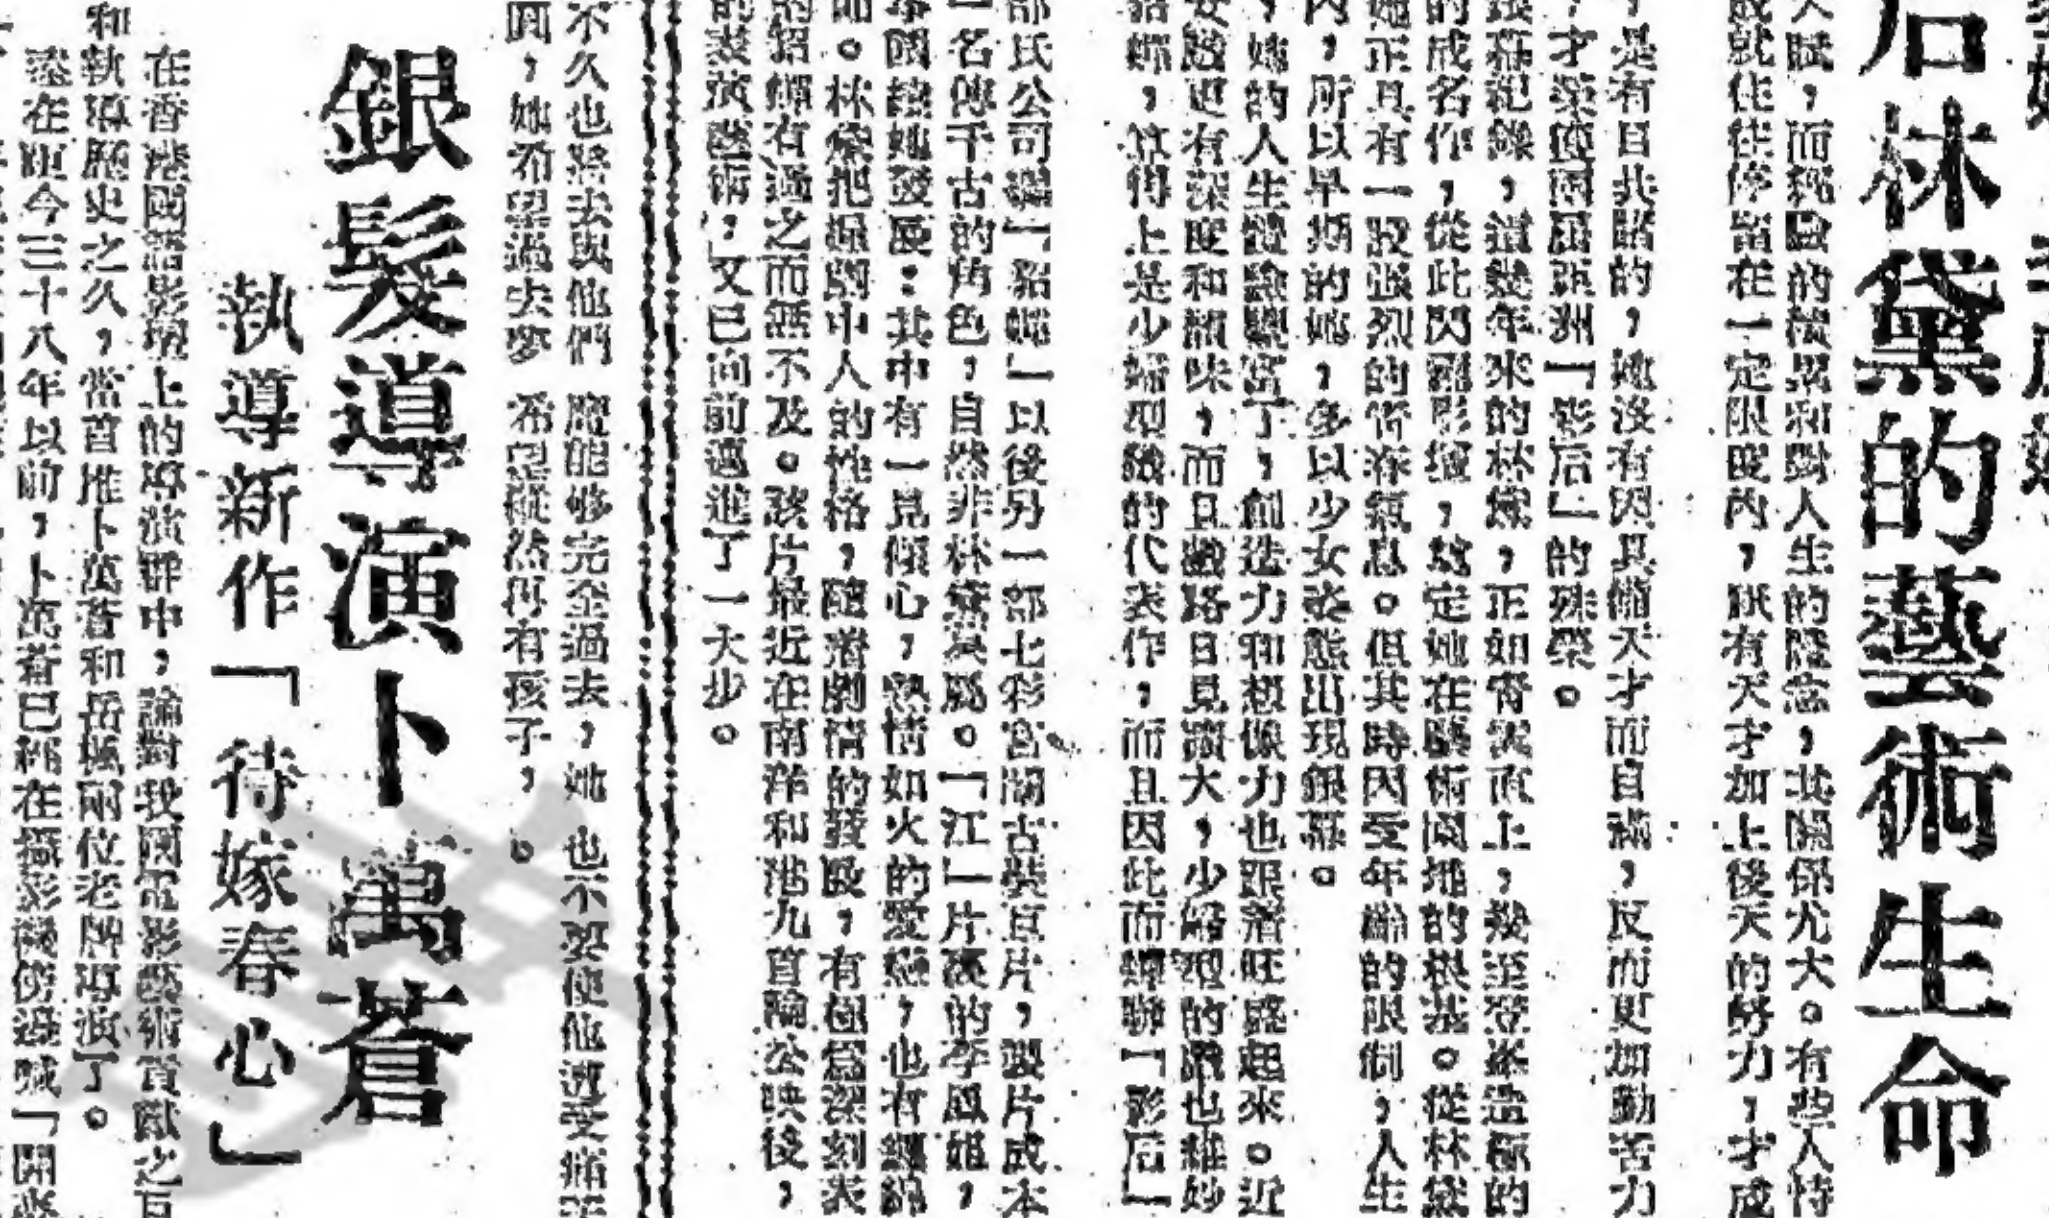 后林黛的藝術生命
天賦，而經驗的積累和對人生的隨意，其關係尤大。有些人恃
成就往往停留在一定限度內，賦有天才加上後天的努力，才成
，是有目共睹的，她沒有因具備天才而自滿，反而更加勤苦力
，才榮度兩屆亞洲「影后」的殊榮。
銀幕紀錄，這幾年來的林黛，正如青雲直上，幾至登峯造極的
的成名作，從此閃耀影壇，奠定她在藝術園地的根基。從林黛
她正具有一股强烈的青春氣息。但其時因受年齡的限制，人生
內，所以早期的她，多以少女姿態出現銀幕。
，她的人生體驗豐富了，創造力和想像力也跟着旺盛起來。近
安戲更有深度和韻味，而且戲路日見廣大，少婦型的戲也維妙
貂蟬，算得上是少婦型戲的代表作，而且因此而蟬聯「影后」
邵氏公司繼「貂蟬」以後另一部七彩宮闈古裝巨片，製片成本
一名傳千古的角色，自然非林黛莫屬。「江」片裏的李鳳姐，
事圍繞她發展：其中有一見傾心，熱情如火的愛戀，也有纏綿
面。林黛把握劇中人的性格，隨着劇情的發展，有極爲深刻表
的貂蟬有過之而無不及。該片最近在南洋和港九首輪公映後，
的表演藝術，」又已向前邁進了一大步。
不久也將去與他們
圓，她希望過去夢
應能够完全過去，她也不要使他遭受痛苦
希望縱然再有孩子，。
銀髮導演卜萬蒼
執導新作「待嫁春心」
在香港國語影壇上的導演群中，論對我國電影藝術貢獻之巨
和執導歷史之久，當首推卜萬蒼和岳楓兩位老牌導演了。
遠在距今三十八年以前，卜萬蒼已經在攝影機傍邊喊「開麥